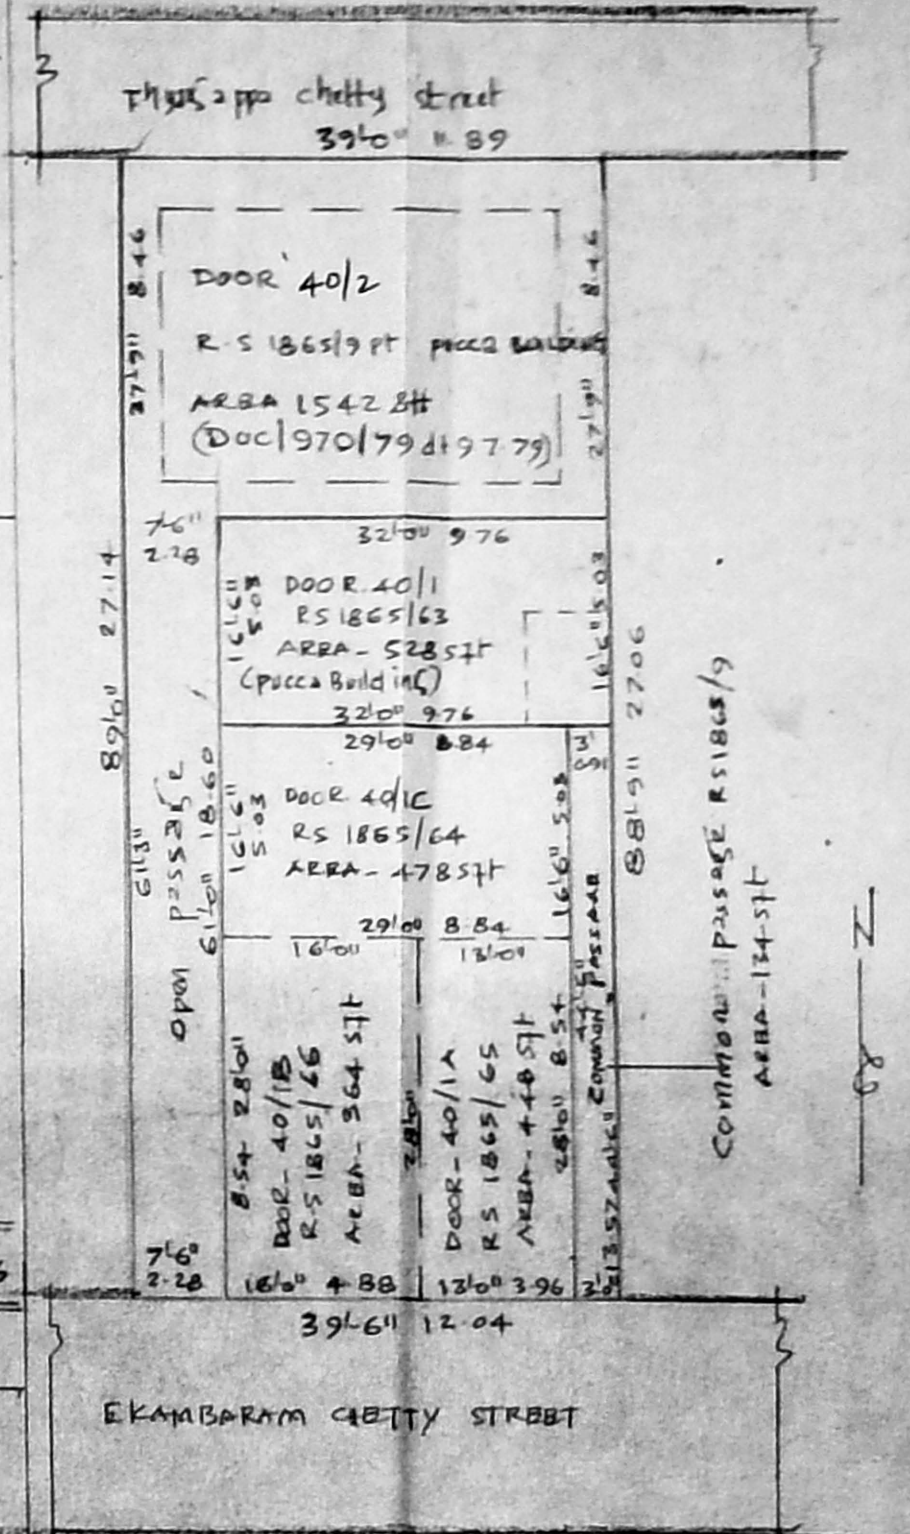 chetty street
39'0" 11.89
8.46
27'9"
DOOR 40/2
R.S 1865/9 pt pucca Building
AREA 1542 sft
(Doc 1970/79 dt 9.7.79)
8.46
27'9"
7'6"
2.28
32'0" 9.76
16'6"
5.03
DOOR 40/1
RS 1865/63
AREA - 528 sft
(pucca Building)
32'0" 9.76
16'6" 5.03
89'0" 27.14
88'9" 27.06
29'0" 8.84
3'
16'6"
5.03
DOOR 40/1C
RS 1865/64
AREA - 478 sft
29'0" 8.84
16'6" 5.03
61'3"
open passage
61'0" 18.60
16'0"
13'0"
8.54 28'0"
DOOR - 40/1B
RS 1865/66
AREA - 364 sft
28'0"
DOOR - 40/1A
RS 1865/65
AREA - 448 sft
28'0" 8.54
COMMON PASSAGE
13.57 44'6"
Common passage RS 1865/9
AREA - 134 sft
N
7'6"
2.28
16'0" 4.88
13'0" 3.96
3'0"
39'6" 12.04
EKAMBARAM CHETTY STREET